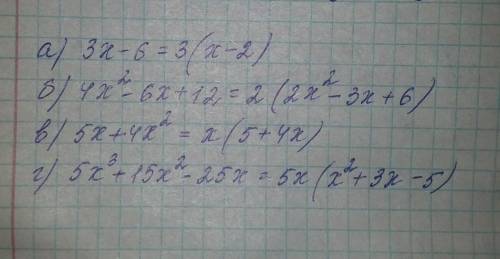 а) 3x-6=3(x-2)
б) 4x²-6x+12=2(2x²-3x+6)
в) 5x+4x²=x(5+4x)
г) 5x³+15x²-25x=5x(x²+3x-5)